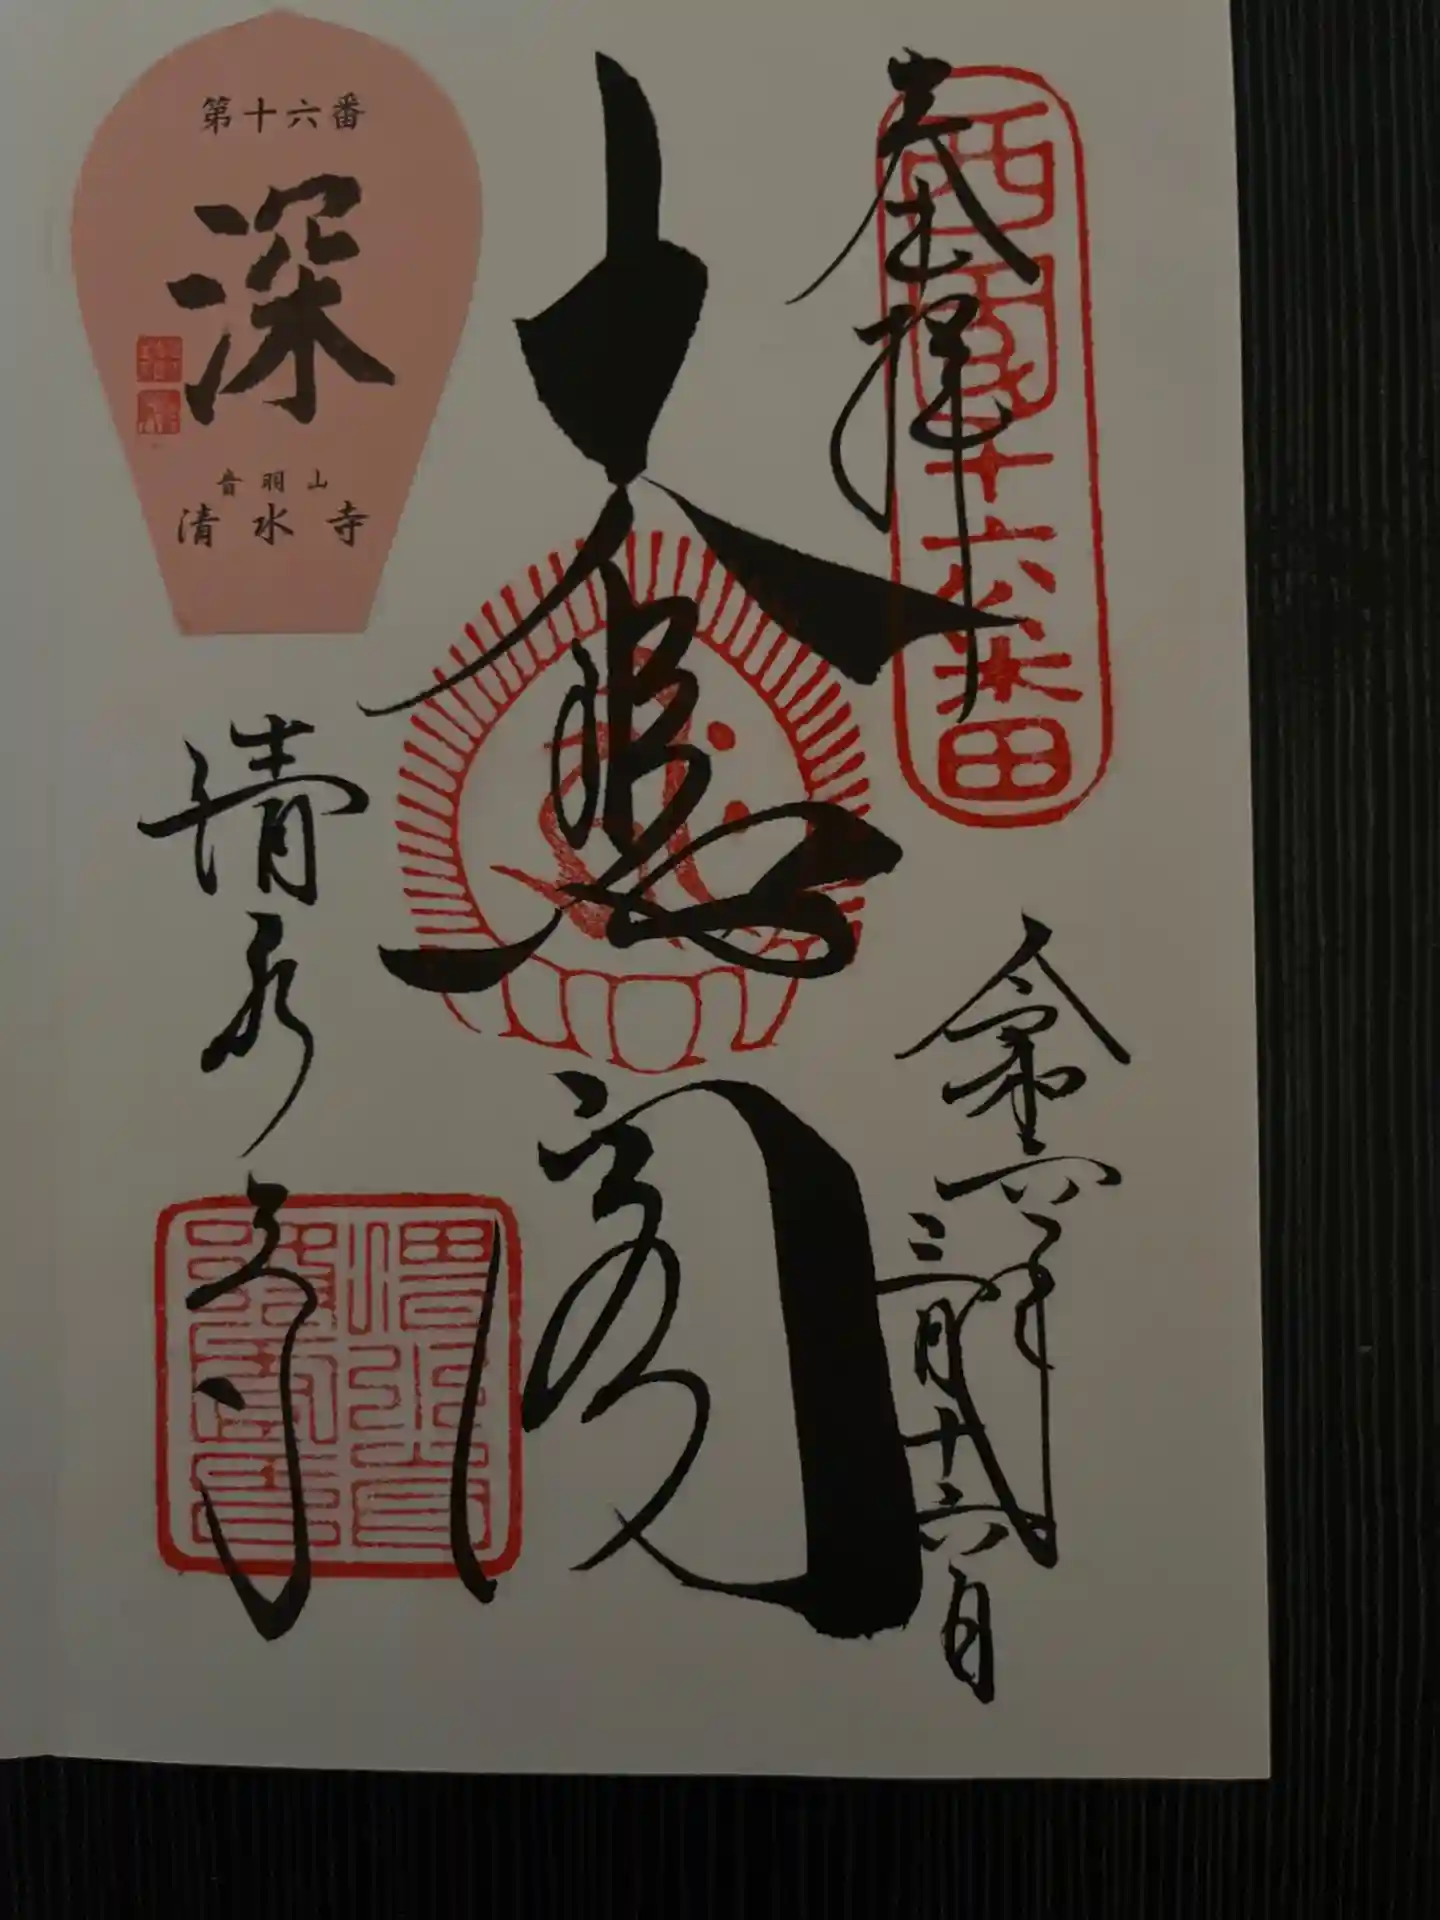 奉拝
西国十六番
令和六年
三月十六日
大悲閣
第十六番
深
音羽山
清水寺
清水寺